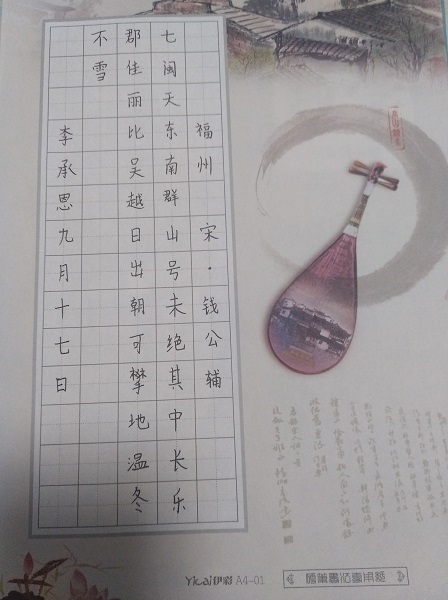 福州 宋·钱公辅
七闽天东南群山号未绝其中长乐
郡佳丽比吴越日出朝可攀地温冬
不雪
李承恩九月十七日
Yicai伊彩 A4-01
硬筆書法專用紙